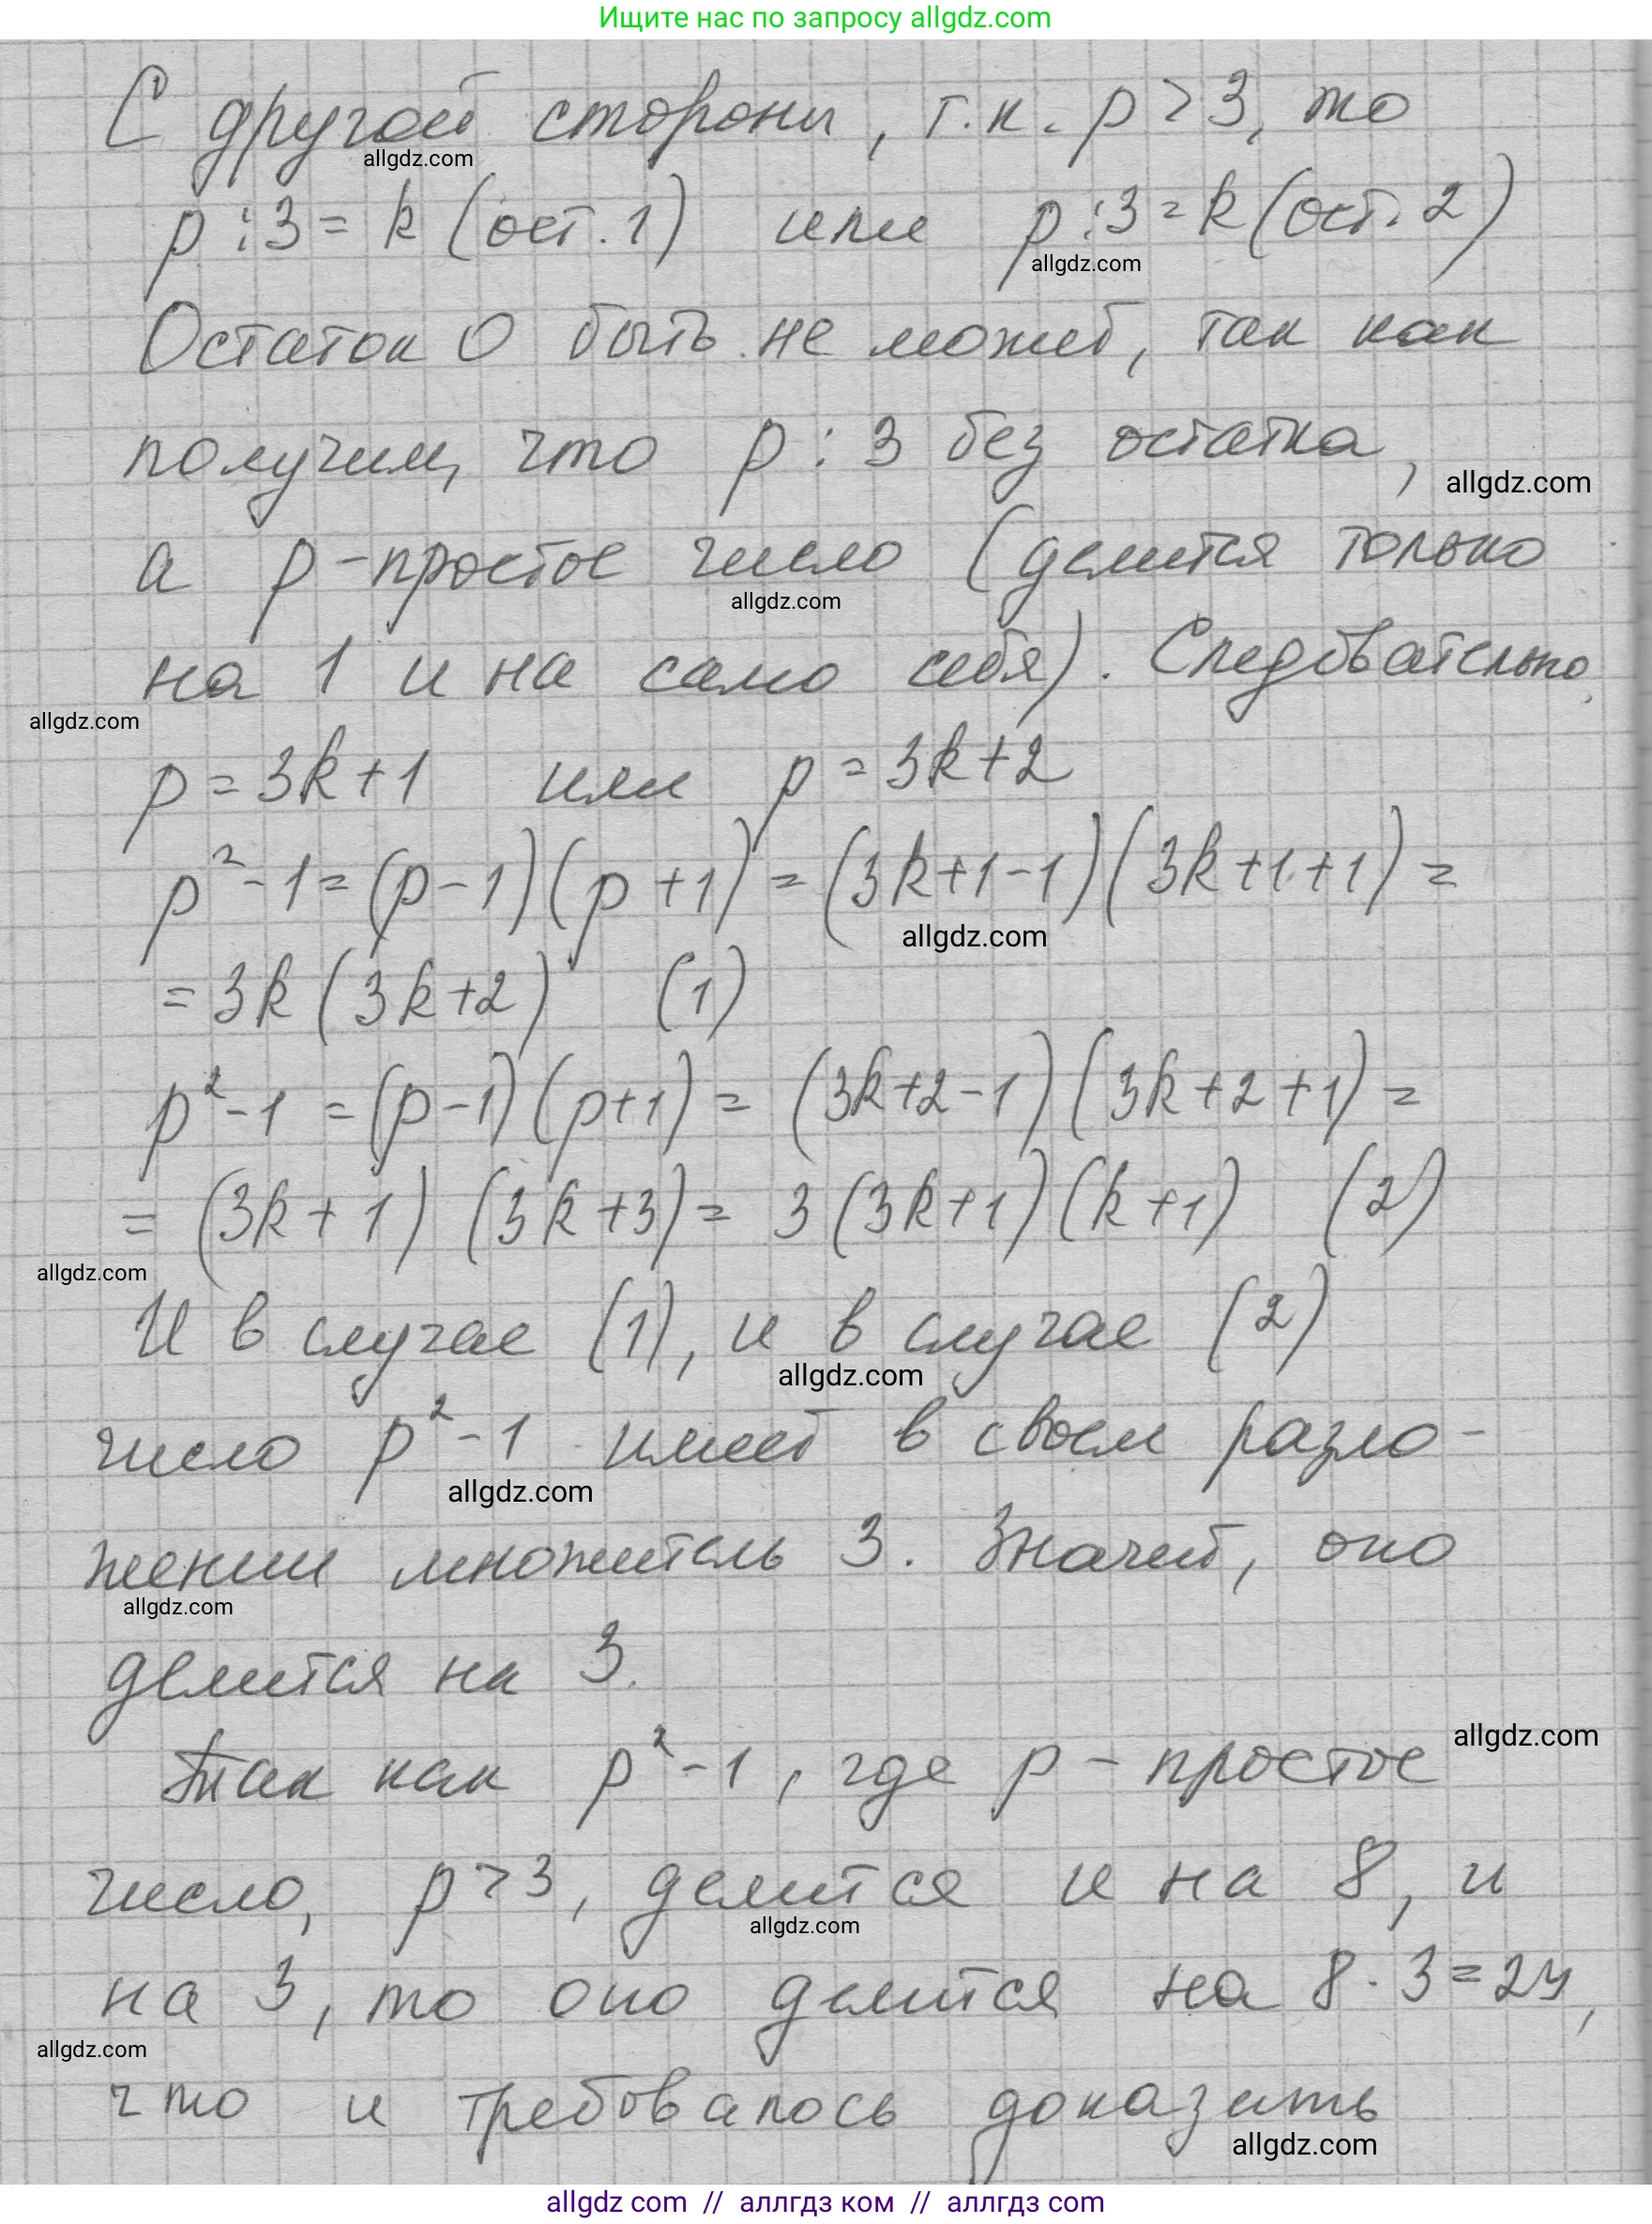 Ищите нас по запросу allgdz.com
С другой стороны, т.к. p > 3, то
allgdz.com
p : 3 = k (ост. 1) или p : 3 = k (ост. 2)
allgdz.com
Остаток 0 быть не может, так как
получим, что p : 3 без остатка,
allgdz.com
а p - простое число (делится только
allgdz.com
на 1 и на само себя). Следовательно,
allgdz.com
p = 3k + 1 или p = 3k + 2
p² - 1 = (p - 1)(p + 1) = (3k + 1 - 1)(3k + 1 + 1) =
allgdz.com
= 3k (3k + 2) (1)
p² - 1 = (p - 1)(p + 1) = (3k + 2 - 1)(3k + 2 + 1) =
= (3k + 1) (3k + 3) = 3 (3k + 1)(k + 1) (2)
allgdz.com
И в случае (1), и в случае (2)
allgdz.com
число p² - 1 имеет в своем разло-
allgdz.com
жении множитель 3. Значит, оно
allgdz.com
делится на 3.
allgdz.com
Так как p² - 1, где p - простое
число, p > 3, делится и на 8, и
allgdz.com
на 3, то оно делится на 8 · 3 = 24,
allgdz.com
что и требовалось доказать
allgdz.com
allgdz com // аллгдз ком // аллгдз com